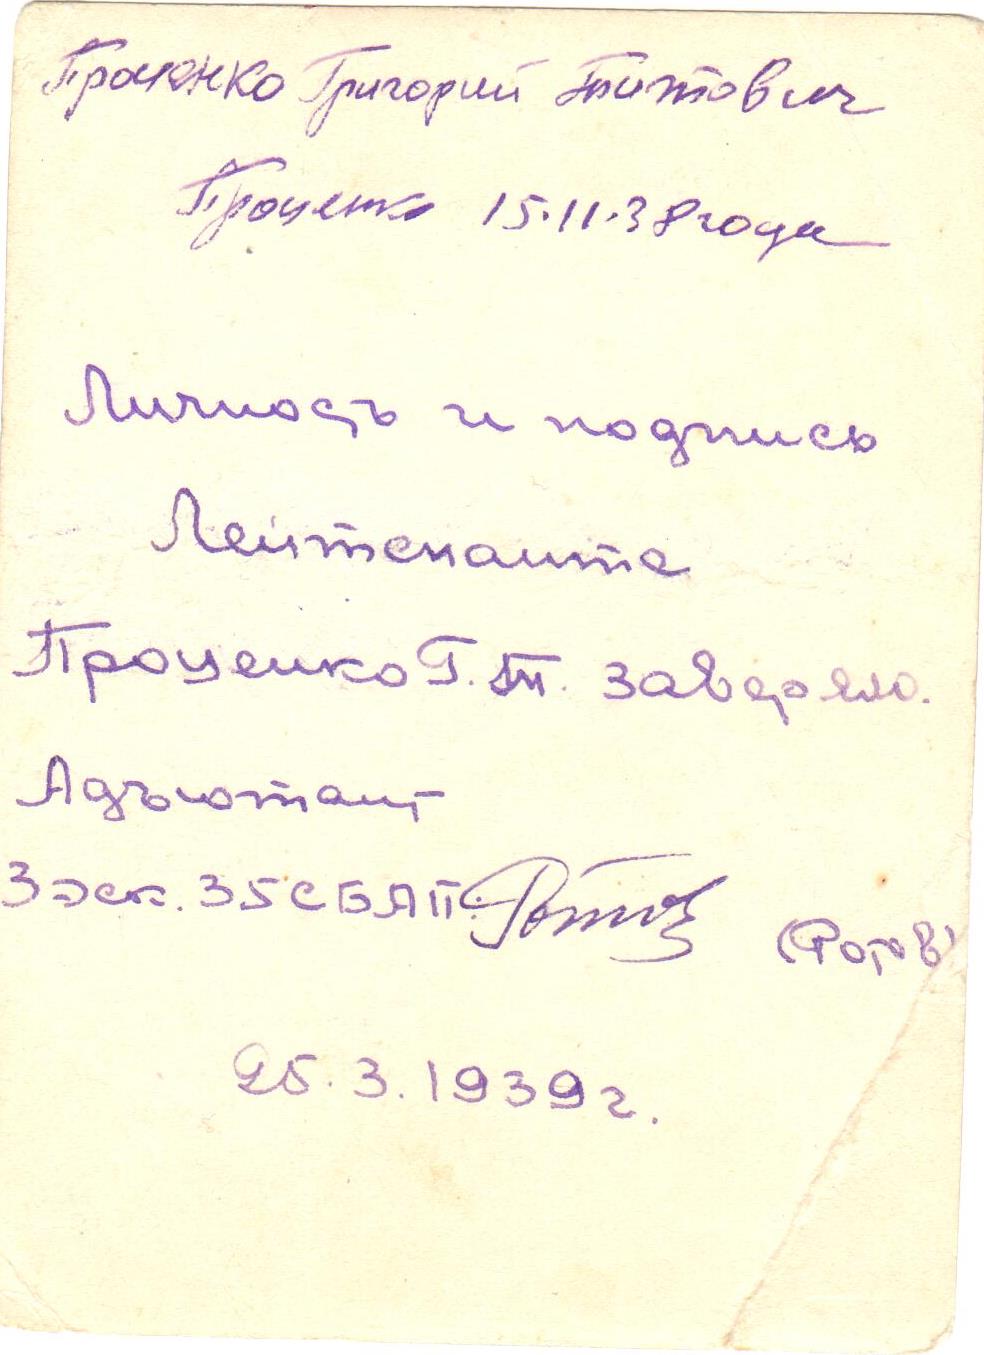 Проценко Григорий Титович
Проценко 15.11.38 года
Личность и подпись
Лейтенанта
Проценко Г.Т. заверяю.
Адъютант
3 эск. 35 СБАП.
(Ротов)
25.3.1939 г.